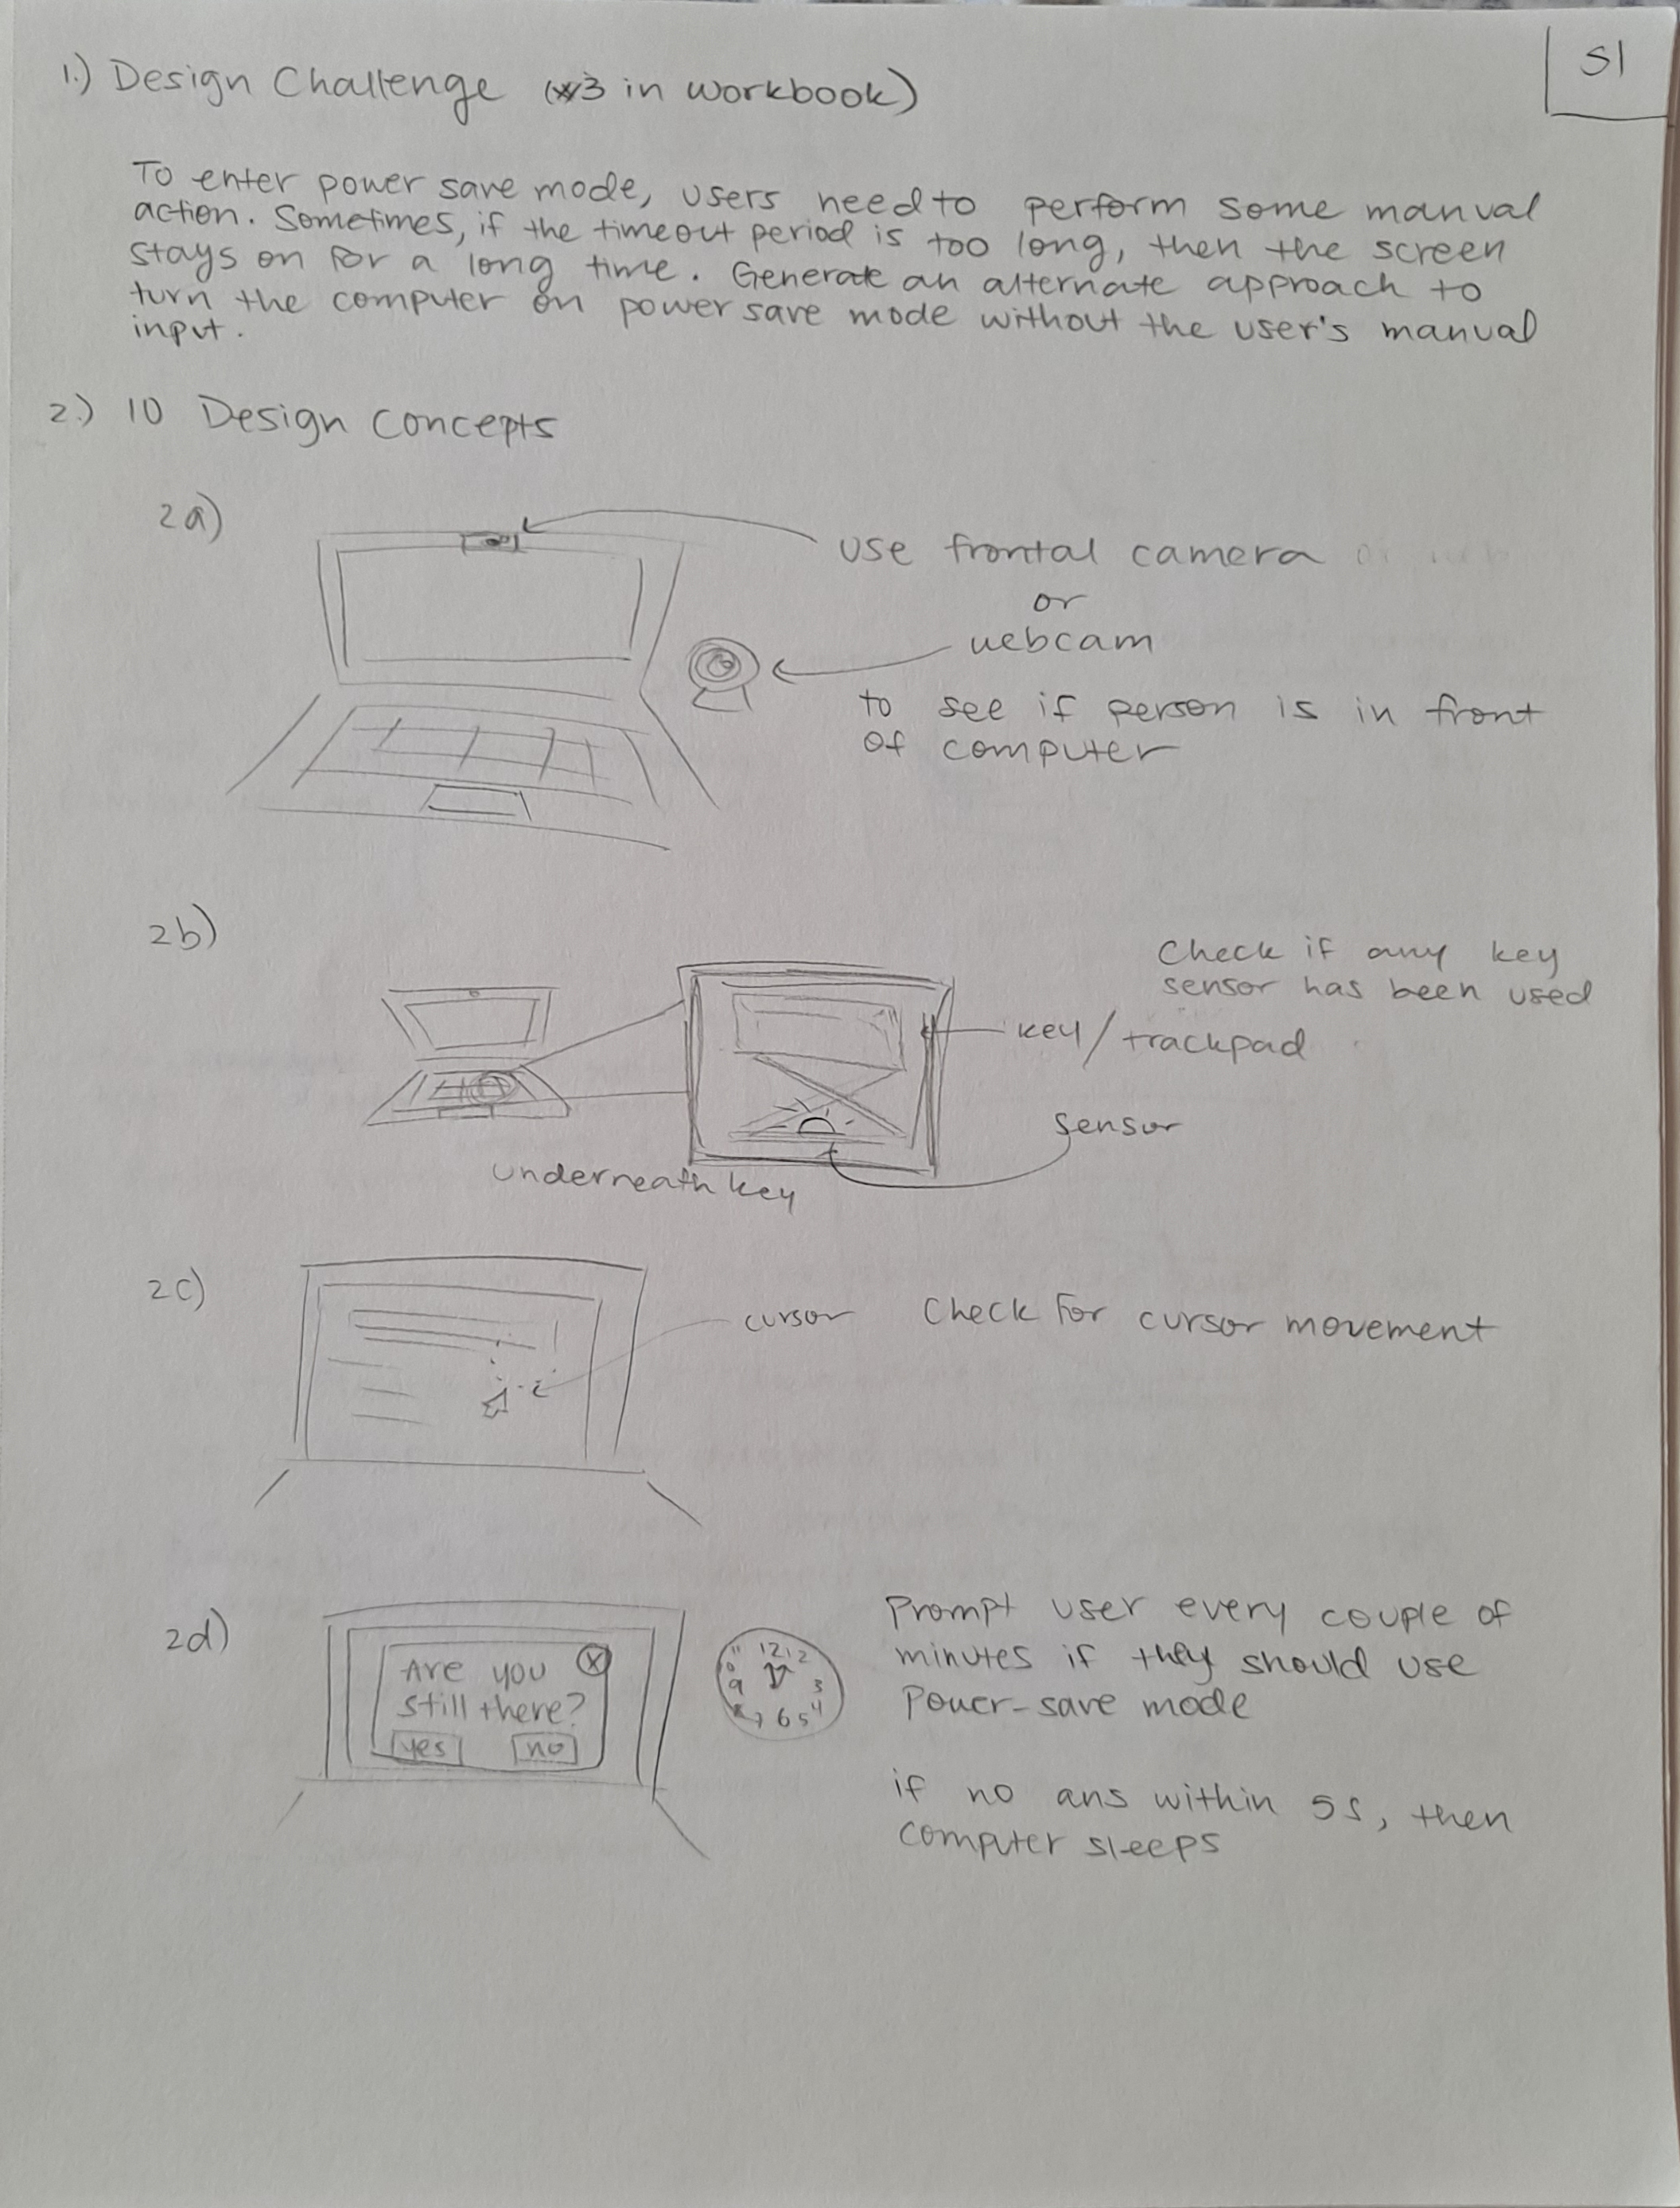 S1
1.) Design Challenge (#3 in workbook)
To enter power save mode, users need to perform some manual
action. Sometimes, if the timeout period is too long, then the screen
stays on for a long time. Generate an alternate approach to
turn the computer on power save mode without the user's manual
input.
2.) 10 Design Concepts
2a)
use frontal camera
or
webcam
to see if person is in front
of computer
2b)
Check if any key
sensor has been used
key/trackpad
sensor
underneath key
2c)
cursor
Check for cursor movement
2d)
Are you
still there?
yes no
11 12 1 2
10
9 3
7 6 5 4
Prompt user every couple of
minutes if they should use
Power-save mode
if no ans within 5s, then
computer sleeps